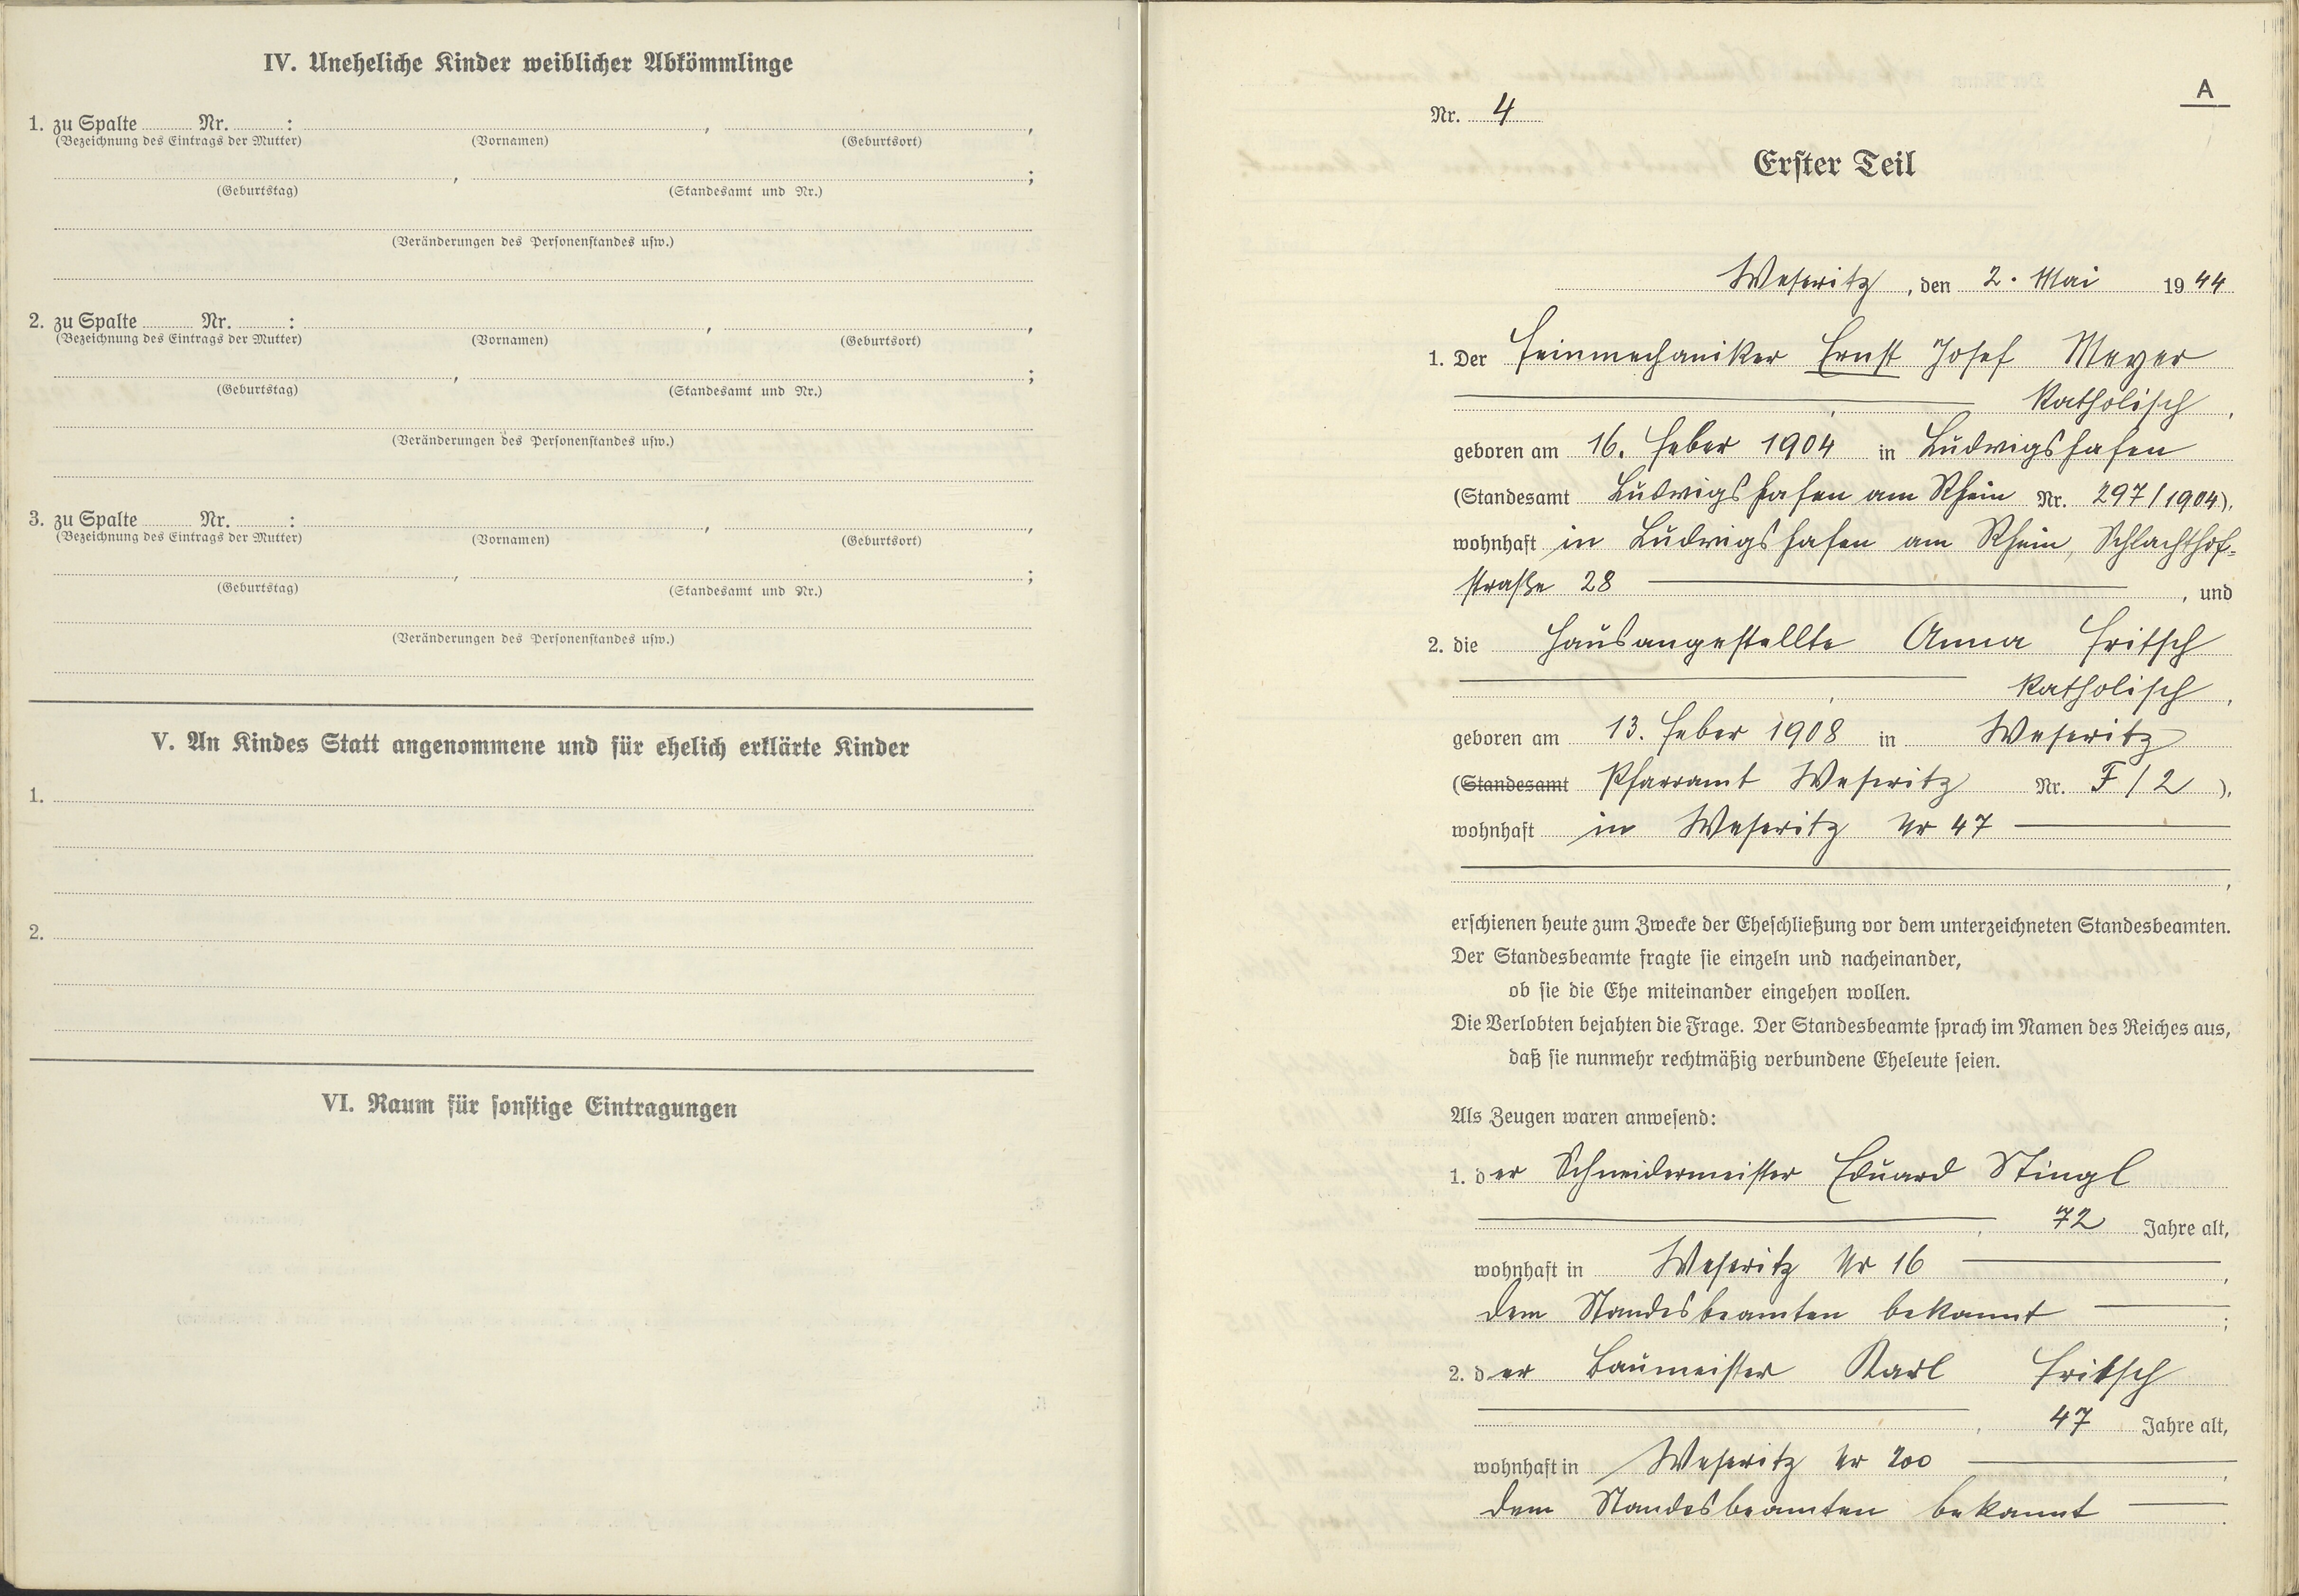 IV. Uneheliche Kinder weiblicher Abkömmlinge
1. zu Spalte ........ Nr. ........ : ........ , ........ ,
(Bezeichnung des Eintrags der Mutter) (Vornamen) (Geburtsort)
........ , ........ ;
(Geburtstag) (Standesamt und Nr.)
(Veränderungen des Personenstandes usw.)
2. zu Spalte ........ Nr. ........ : ........ , ........ ,
(Bezeichnung des Eintrags der Mutter) (Vornamen) (Geburtsort)
........ , ........ ;
(Geburtstag) (Standesamt und Nr.)
(Veränderungen des Personenstandes usw.)
3. zu Spalte ........ Nr. ........ : ........ , ........ ,
(Bezeichnung des Eintrags der Mutter) (Vornamen) (Geburtsort)
........ , ........ ;
(Geburtstag) (Standesamt und Nr.)
(Veränderungen des Personenstandes usw.)
V. An Kindes Statt angenommene und für ehelich erklärte Kinder
1.
2.
VI. Raum für sonstige Eintragungen
A
Nr. 4
Erster Teil
Weseritz, den 2. Mai 1944
1. Der Feinmechaniker Ernst Josef Meyer
katholisch,
geboren am 16. Feber 1904 in Ludwigshafen
(Standesamt Ludwigshafen am Rhein Nr. 297/1904),
wohnhaft in Ludwigshafen am Rhein, Schlachthof-
straße 28, und
2. die Hausangestellte Anna Fritsch
katholisch,
geboren am 13. Feber 1908 in Weseritz
(Standesamt Pfarramt Weseritz Nr. F/2),
wohnhaft in Weseritz Nr 47
,
erschienen heute zum Zwecke der Eheschließung vor dem unterzeichneten Standesbeamten.
Der Standesbeamte fragte sie einzeln und nacheinander,
ob sie die Ehe miteinander eingehen wollen.
Die Verlobten bejahten die Frage. Der Standesbeamte sprach im Namen des Reiches aus,
daß sie nunmehr rechtmäßig verbundene Eheleute seien.
Als Zeugen waren anwesend:
1. der Schneidermeister Eduard Stingl
, 72 Jahre alt,
wohnhaft in Weseritz Nr 16,
dem Standesbeamten bekannt;
2. der Baumeister Karl Fritsch
, 47 Jahre alt,
wohnhaft in Weseritz Nr 200,
dem Standesbeamten bekannt.